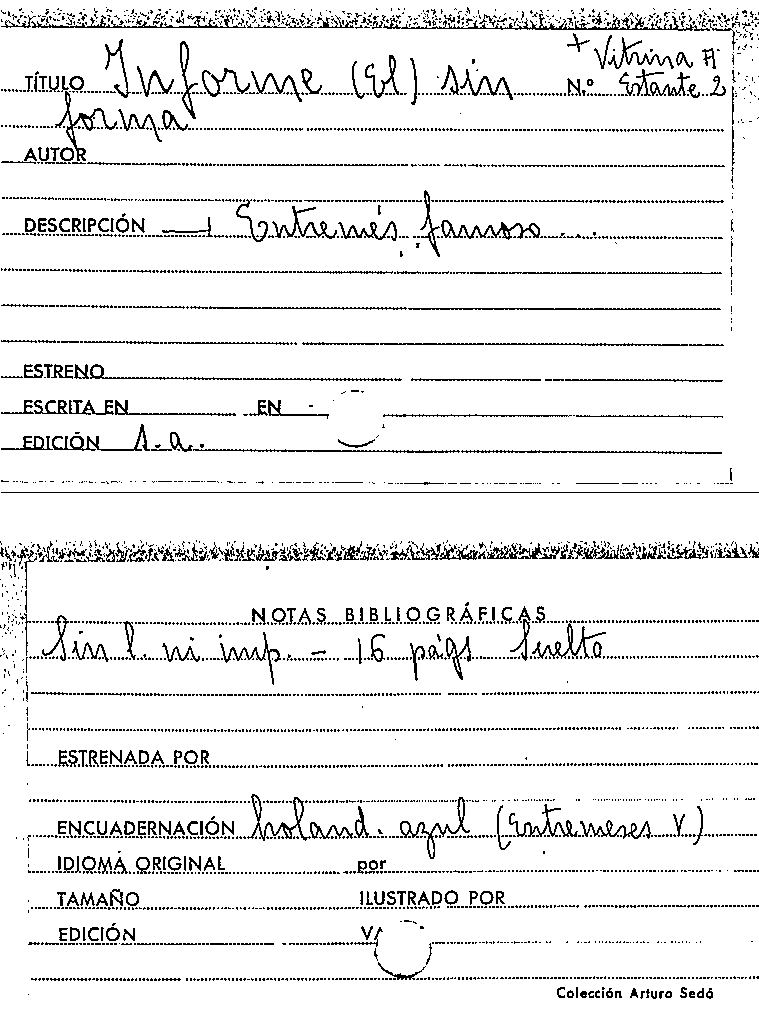 + Vitrina A
TÍTULO Informe (El) sin N.º Estante 2
forma
AUTOR
DESCRIPCIÓN Entremés famoso ...
ESTRENO
ESCRITA EN EN
EDICIÓN s.a.
NOTAS BIBLIOGRÁFICAS
Sin l. ni imp. - 16 págs Suelto
ESTRENADA POR
ENCUADERNACIÓN holand. azul (Entremeses V)
IDIOMA ORIGINAL por
TAMAÑO ILUSTRADO POR
EDICIÓN
Colección Arturo Sedó